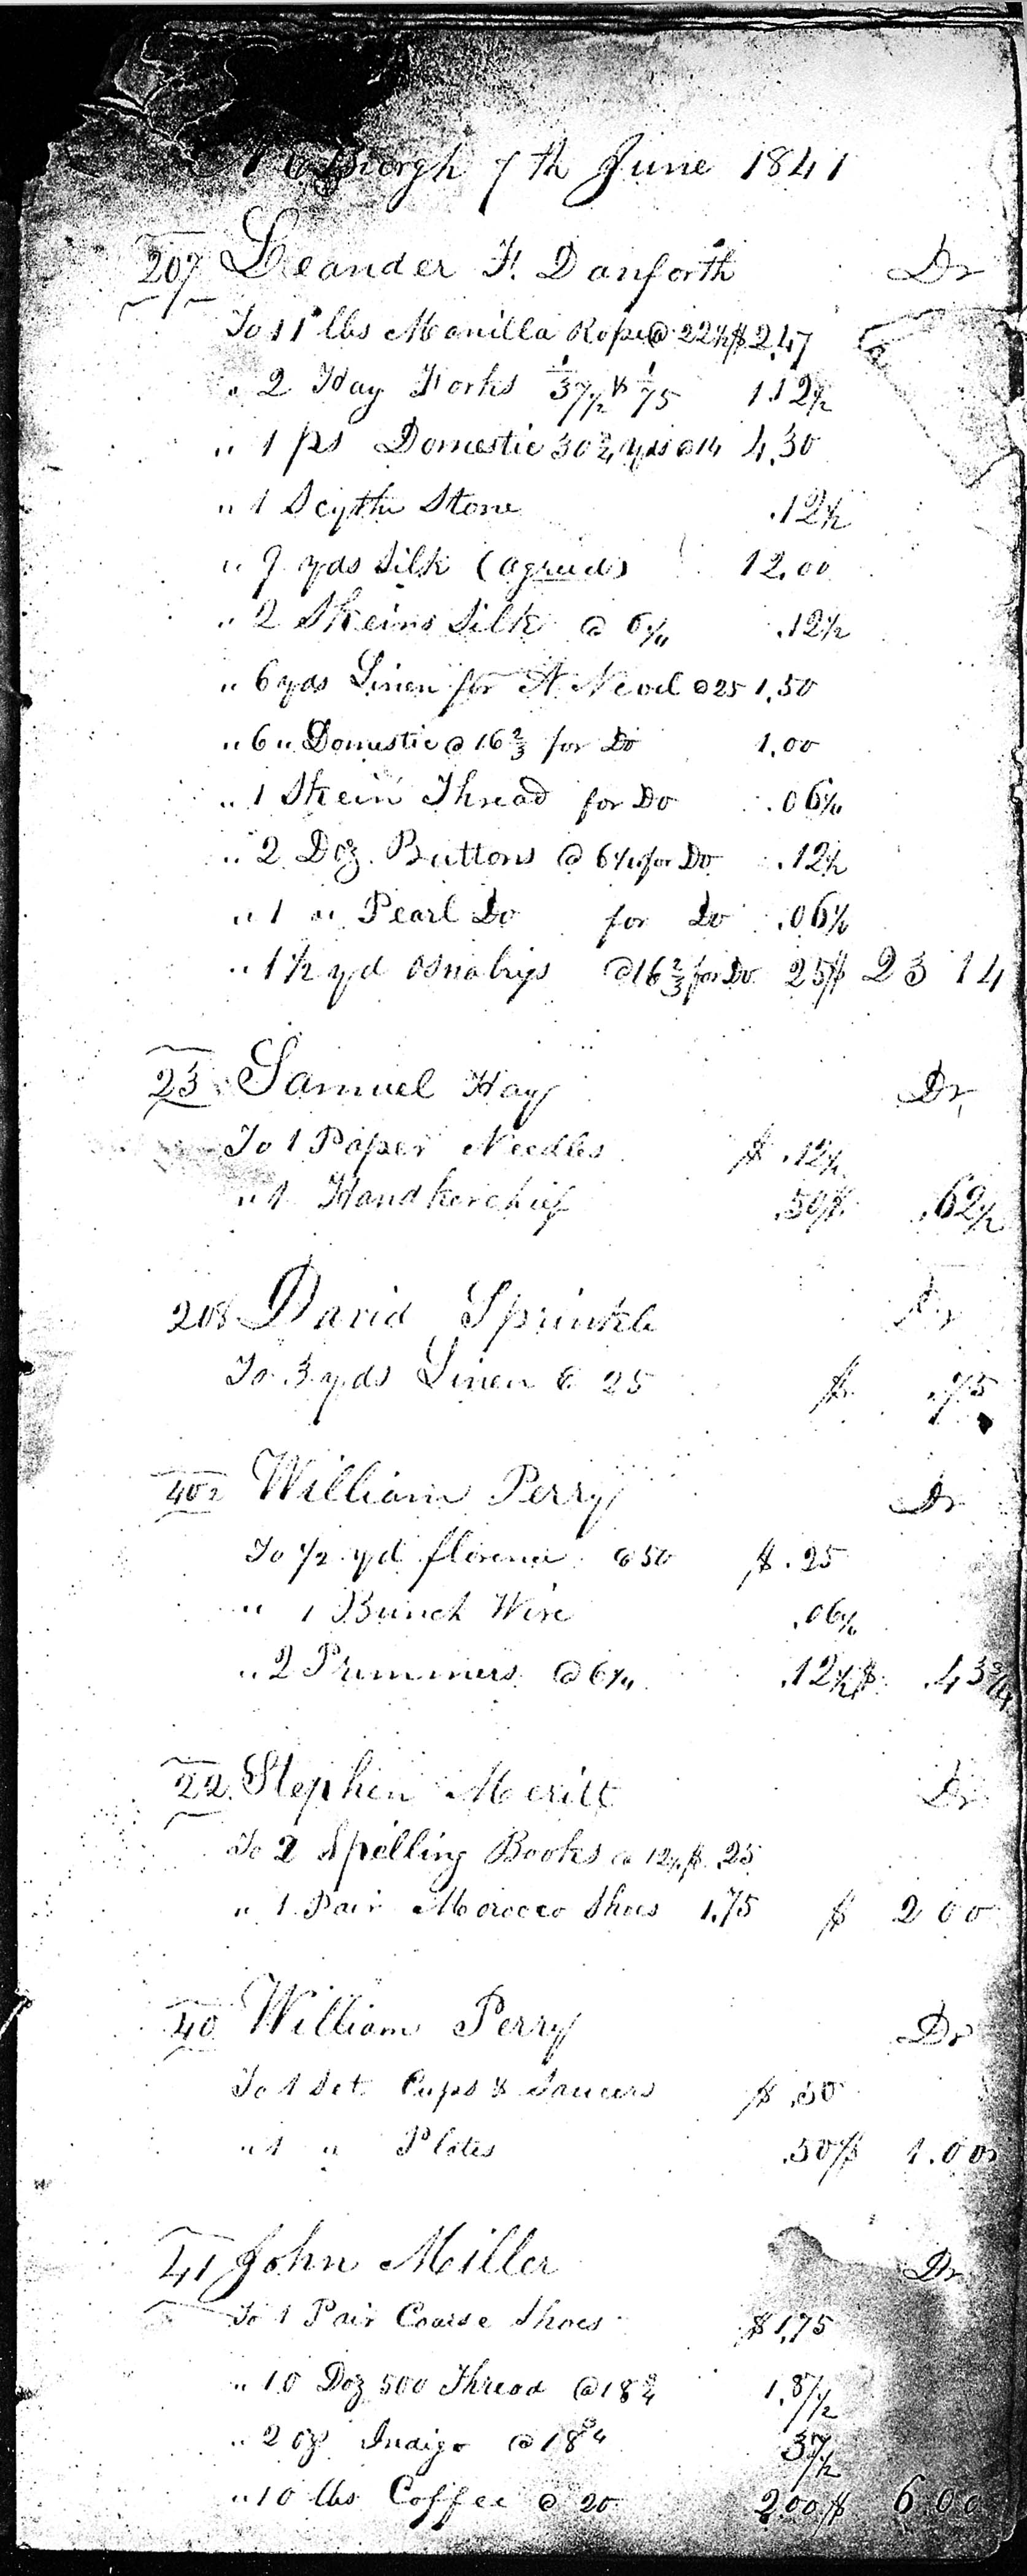 Newburgh 7th June 1841
207 Leander F. Danforth Dr
To 11 lbs Manilla Rope @ 22½ $ 2.47
" 2 Hay Forks 1/37½ & 1/75 1.12½
" 1 ps Domestic 30¾ yds @ 14 4.30
" 1 Scythe Stone .12½
" 9 yds Silk (agreed) 12.00
" 2 Skeins Silk @ 6¼ .12½
" 6 yds Linen for A Nevil @ 25 1.50
" 6 " Domestic @ 16⅔ for Do 1.00
" 1 Skein Thread for Do .06¼
" 2 Doz. Buttons @ 6¼ for Do .12½
" 1 " Pearl Do for Do .06¼
" 1½ yd Osnabrigs @ 16⅔ for Do 25 $ 23 14
23 Samuel Hay Dr
To 1 Paper Needles $ .12½
" 1 Handkerchief .50 $ .62½
208 David Sprinkle Dr
To 3 yds Linen @ 25 $ .75
402 William Perry Dr
To ½ yd florence @ 50 $ .25
" 1 Bunch Wire .06¼
" 2 Primmers @ 6¼ .12½ $ .43¾
22 Stephen Meritt Dr
To 2 Spelling Books @ 12½ $ .25
" 1 Pair Morocco Shoes 1.75 $ 2 00
40 William Perry Dr
To 1 Set Cups & Saucers $ .50
" 1 " Plates .50 $ 1.00
41 John Miller Dr
To 1 Pair Coarse Shoes $ 1.75
" 10 Doz 500 Thread @ 18¾ 1.87½
" 2 oz Indigo @ 18¾ 37½
" 10 lbs Coffee @ 20 2.00 $ 6.00